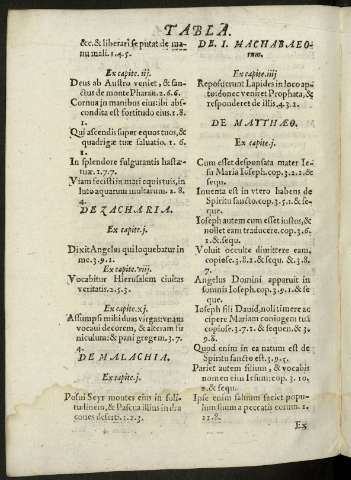 TABLA.
&c. & liberari se putat de ma-
nu mali. 1.4.5.
Ex capite. iij.
Deus ab Austro veniet, & san-
ctus de monte Pharan. 2.6.6.
Cornua in manibus eius: ibi abs-
condita est fortitudo eius. 1.8.
1.
Qui ascendis super equos tuos, &
quadrigæ tuæ saluatio. 1.6.
1.
In splendore fulgurantis hastæ-
tuæ. 1.7.7.
Viam fecisti in mari equis tuis, in
luto aquarum multarum. 2.8.
4.
DE ZACHARIA.
Ex capite. j.
Dixit Angelus qui loquebatur in
me. 3.9.2.
Ex capite. viij.
Vocabitur Hierusalem ciuitas
veritatis. 2.5.3.
Ex capite. xj.
Assumpsi mihi duas virgas: vnam
vocaui decorem, & alteram fu-
niculum: & paui gregem. 3.7.
4.
DE MALACHIA.
Ex capite. j.
Posui Seyr montes eius in soli-
tudinem, & Pascua illius in dra
cones deserti. 1.2.3.
DE. I. MACHABAEO-
rum.
Ex capite. iiij
Reposuerunt Lapides in loco ap-
to: donec veniret Propheta, &
responderet de illis. 4.3.2.
DE MATTHÆO.
Ex capite. j.
Cum esset desponsata mater Ie-
su Maria Ioseph. cop. 3.2.2. &
sequ.
Inuenta est in vtero habens de
Spiritu sancto. cop. 3.5.1. & se-
que.
Ioseph autem cum esset iustus, &
nollet eam traducere. cop. 3.6.
1. & sequ.
Voluit occulte dimittere eam.
copiose. 3.8.2. & sequ. & 3.8.
7.
Angelus Domini apparuit in
somnis Ioseph. cop. 3.9.1. & se-
que.
Ioseph fili Dauid, noli timere ac
cipere Mariam coniugem tuā
copiose. 3.7.1. & sequen. & 3.
9.8.
Quod enim in ea natum est de
Spiritu sancto est. 3.9.5.
Pariet autem filium, & vocabis
nomen eius Iesum: cop. 3.10.
2. & sequ.
Ipse enim saluum faciet popu-
lum suum a peccatis eorum. 1.
21.8.
Ex